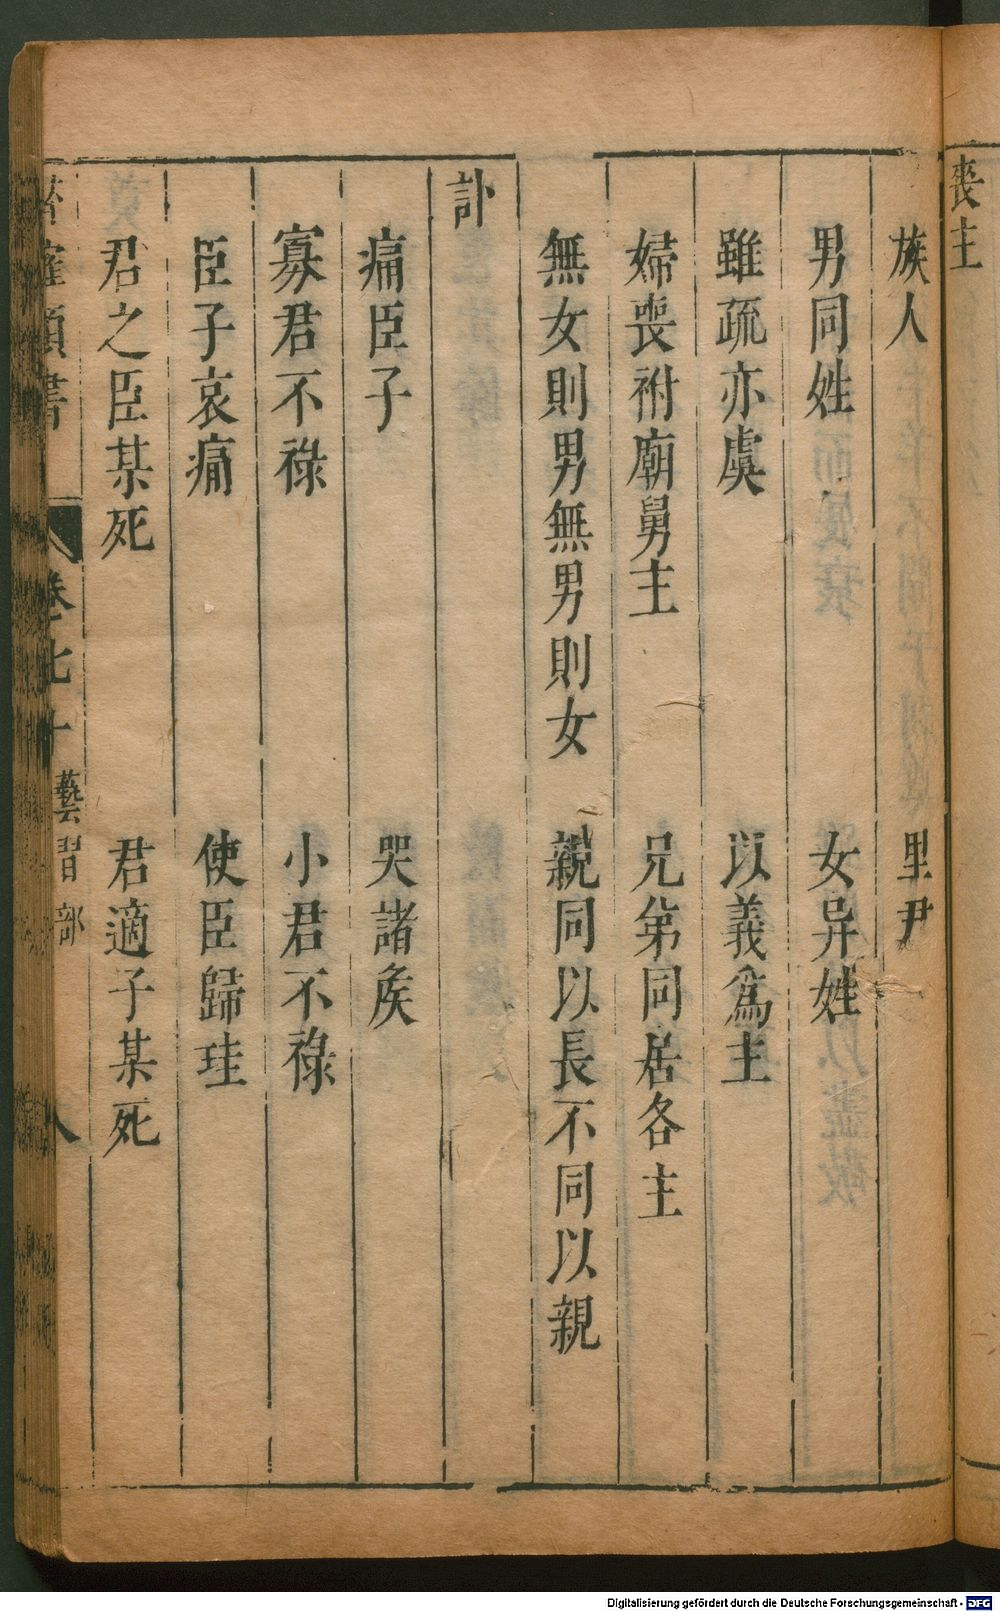 喪主
族人　里尹
男同姓　女异姓
雖疏亦虞　以義爲主
婦喪祔廟舅主　兄弟同居各主
無女則男男無男則女　親同以長不同以親
訃
痛臣子　哭諸矦
寡君不祿　小君不祿
臣子哀痛　使臣歸珪
君之臣某死　君適子某死
卷七十 藝習部
Digitalisierung gefördert durch die Deutsche Forschungsgemeinschaft - DFG